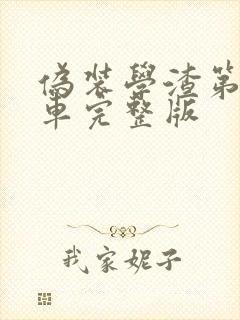 偽装學渣第
車完整版
我家妮子